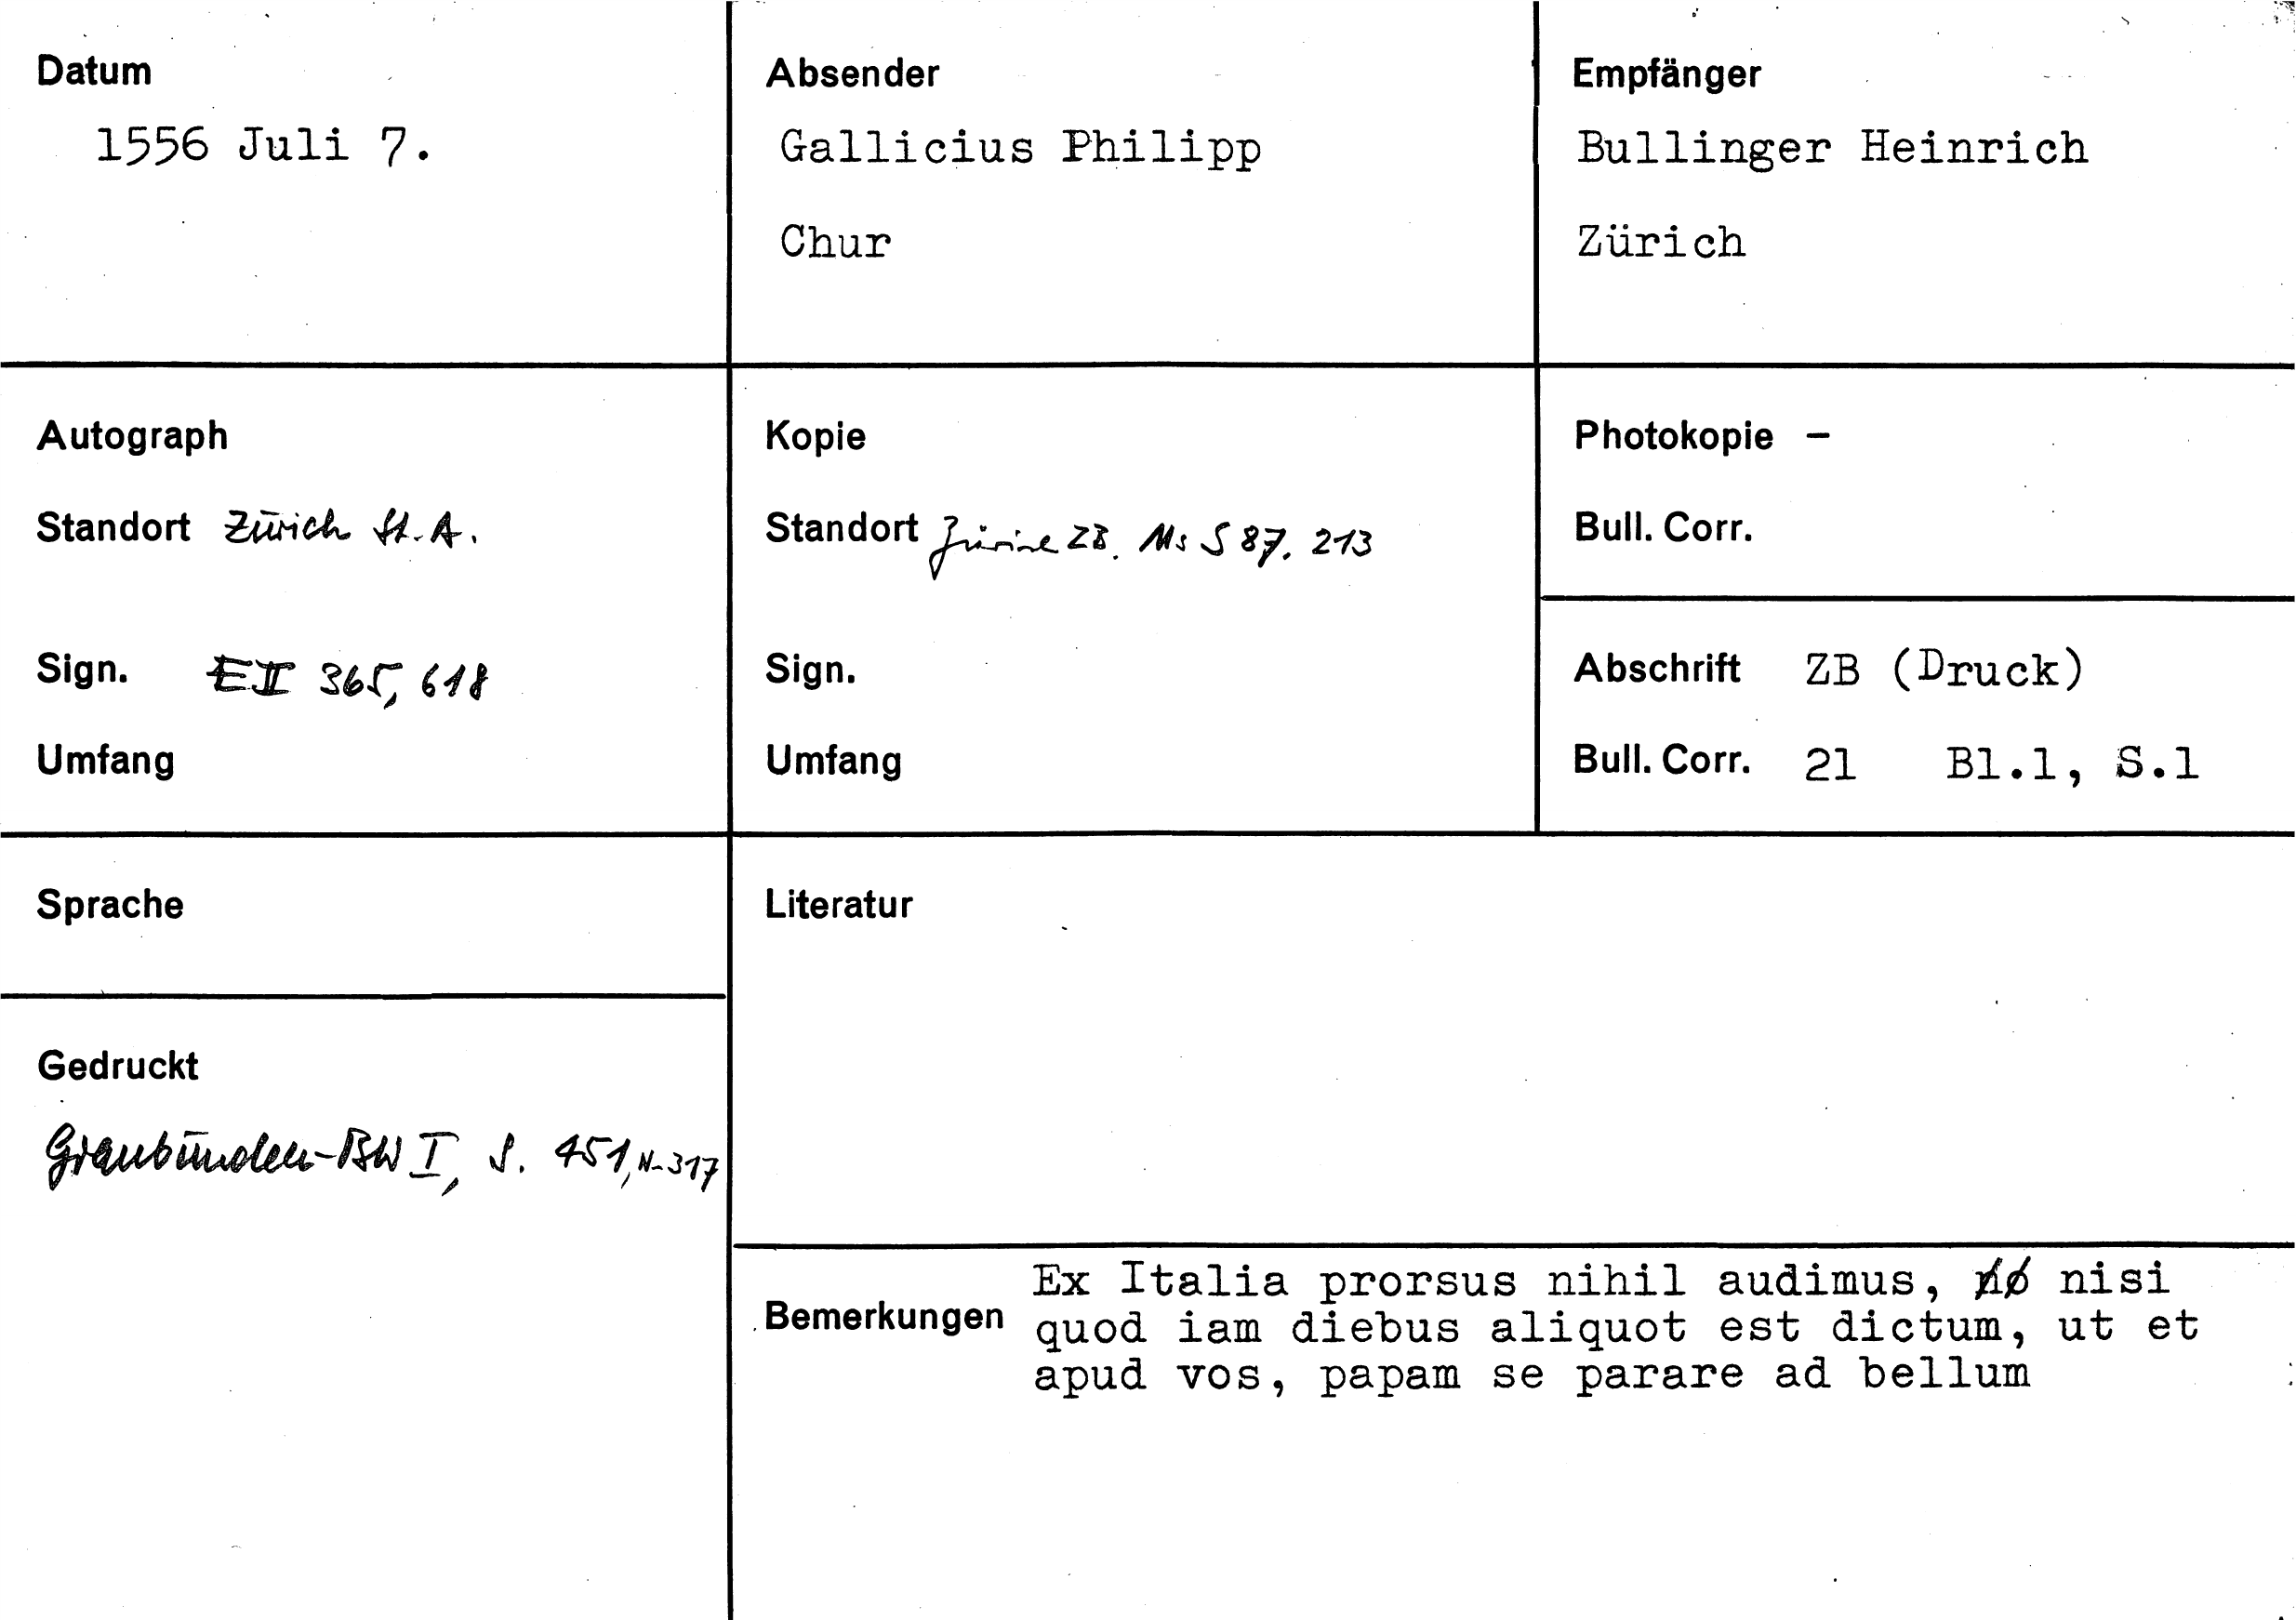 Datum
1556 Juli 7.
Absender
Gallicius Philipp
Chur
Empfänger
Bullinger Heinrich
Zürich
Autograph
Standort Zürich St. A.
Sign. E II 365, 618
Umfang
Kopie
Standort Zürich ZB. Ms S 87. 213
Sign.
Umfang
Photokopie –
Bull. Corr.
Abschrift ZB (Druck)
Bull. Corr. 21 Bl.1, S.1
Sprache
Gedruckt
Graubünden-BW I, S. 451, N. 317
Literatur
Bemerkungen
Ex Italia prorsus nihil audimus, nisi
quod iam diebus aliquot est dictum, ut et
apud vos, papam se parare ad bellum